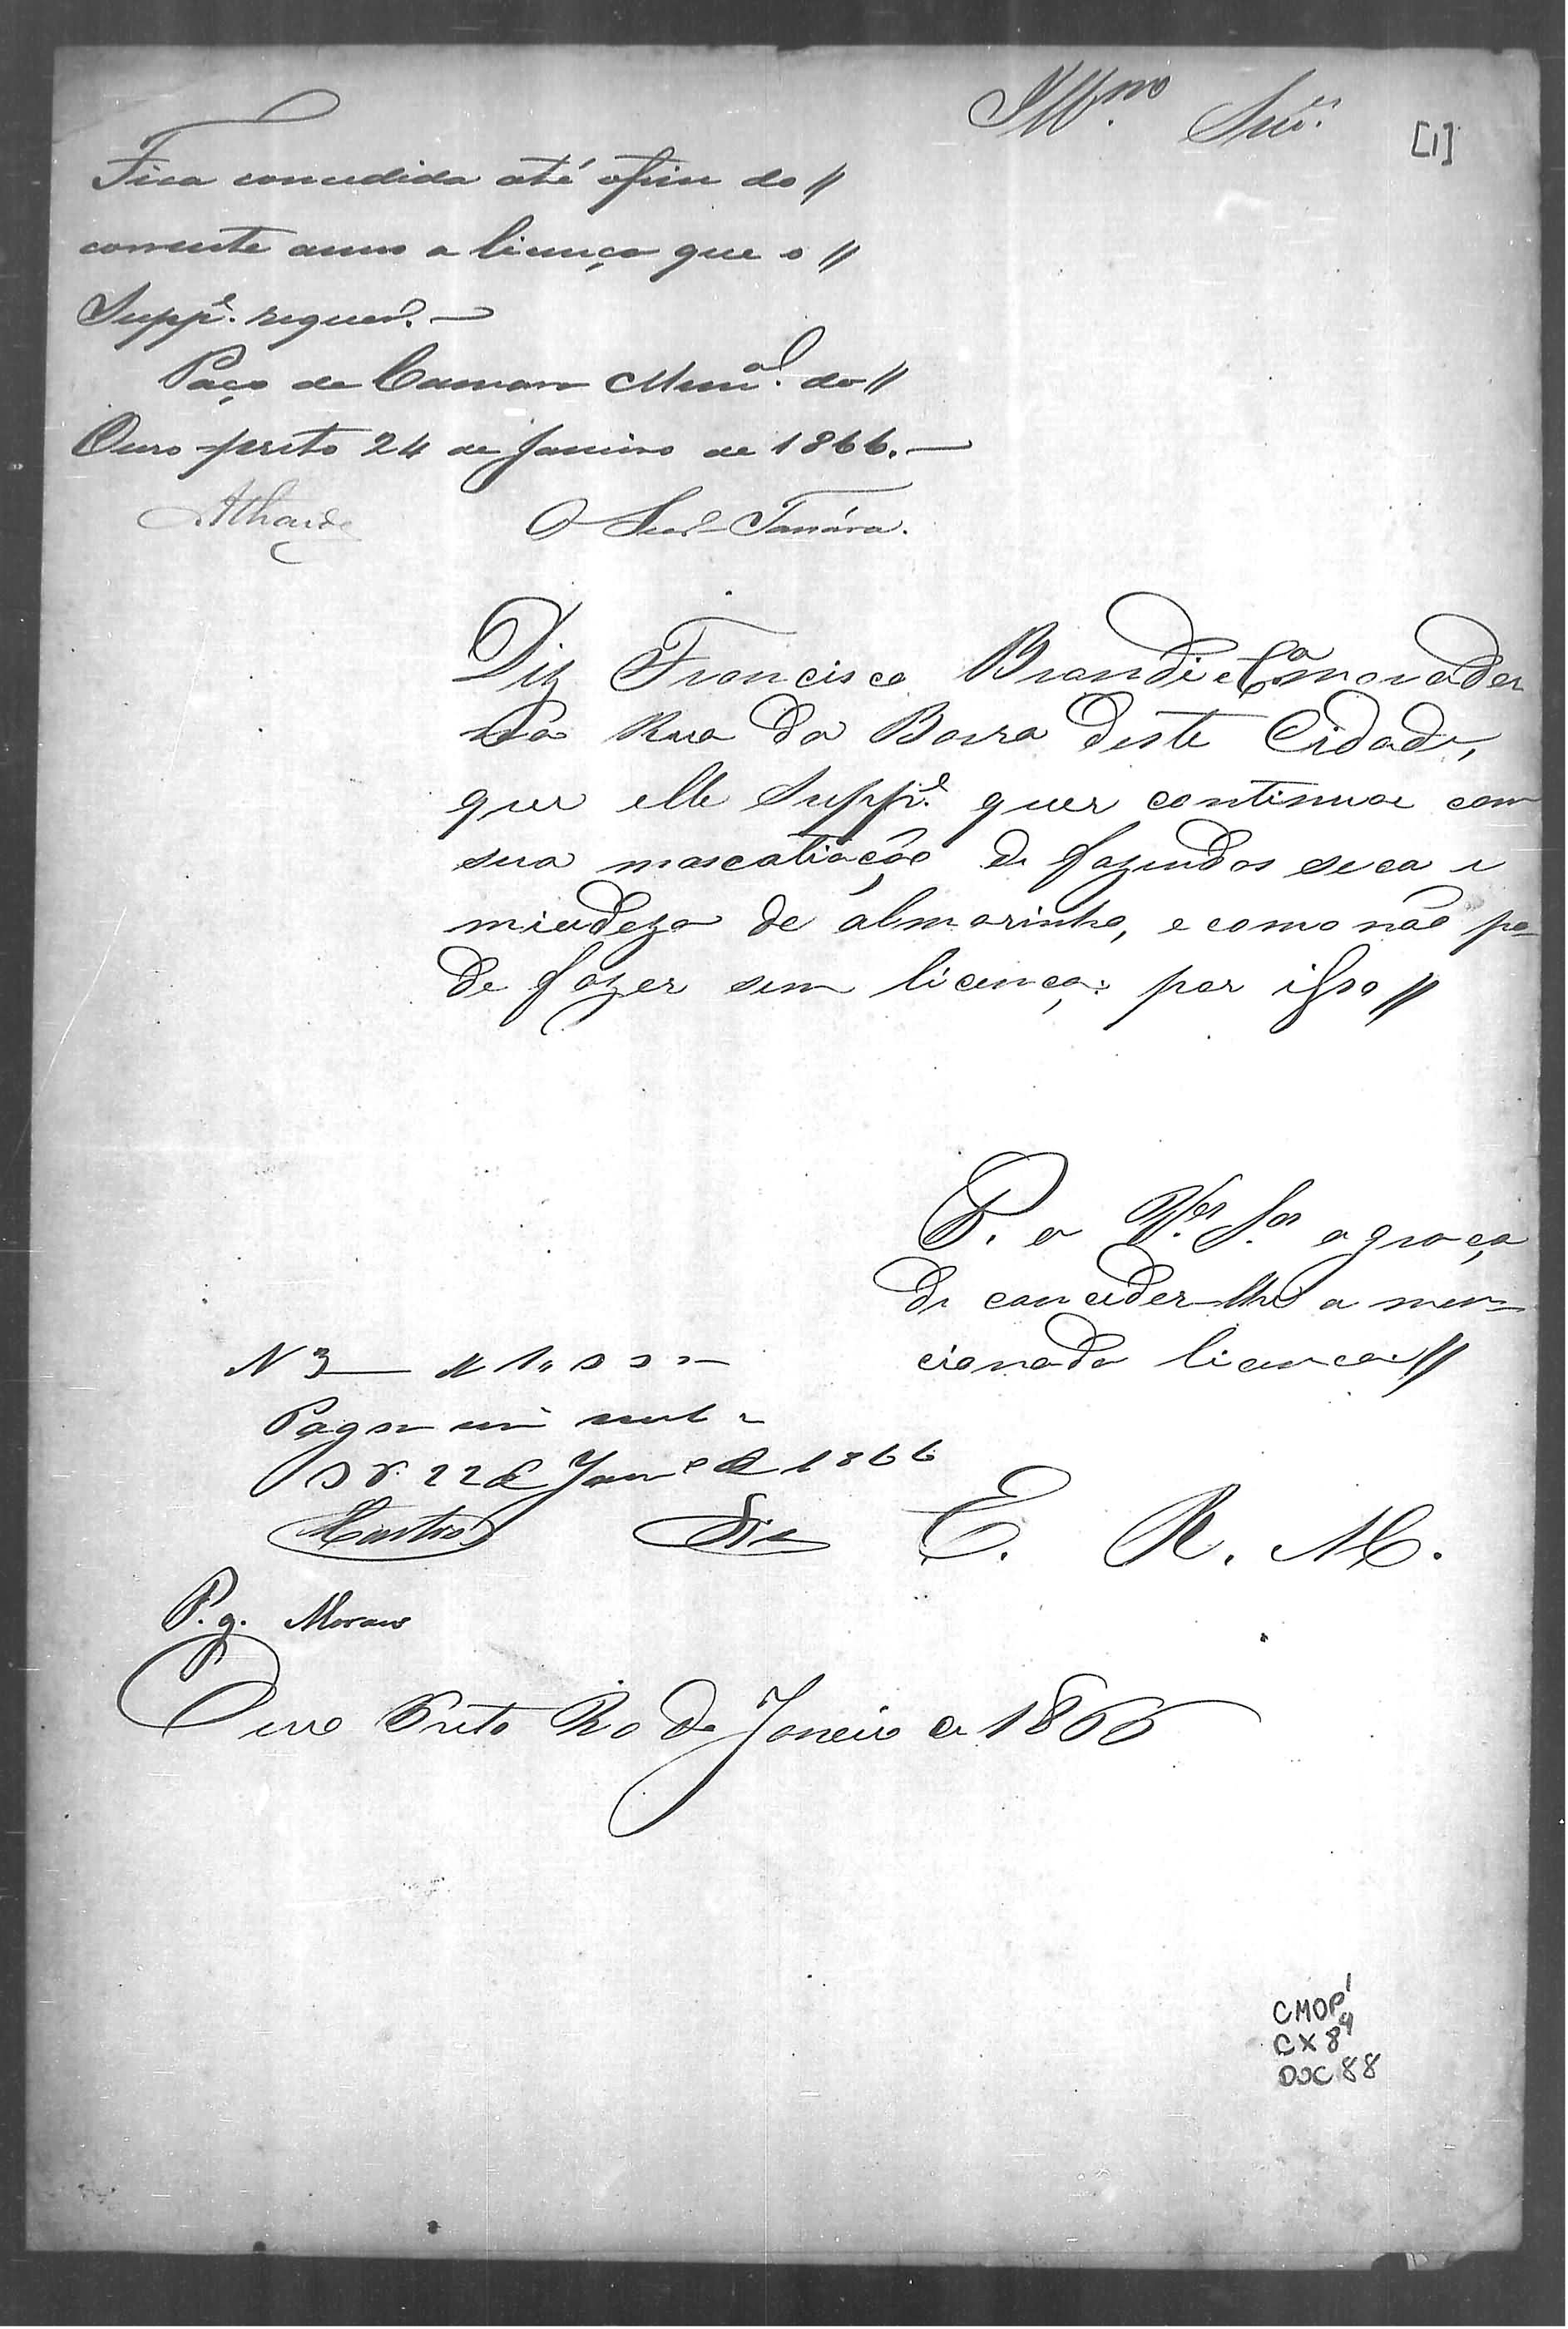 Illmo. Snres.
[1]
Fica concedida até ofim do //
corrente anno a licença que o //
Suppe. requer. —
Paço da Camara Munal. do //
Ouro preto 24 de Janeiro de 1866. —
Athaide O Secro
Diz Francisco Brandi e Ca morador
na Rua da Barra desta Cidade,
que elle Suppe. quer continuar com
sua mascatiação de fazendas seca e
miudeza de almarinho, e como não po-
de fazer sem licença: por isso //
P. a Vas. Sas. a graça
de conceder-lhe a men-
cionada licença: //
N 3 1,,000
Pagou um mil rs
OP. 22 de Janro de 1866
E. R. M.
P. g. Moraes
Ouro Preto de Janeiro de 1866
CMOP 1
CX 89
DOC 88